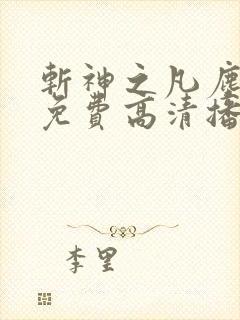 斬神之凡塵
免費高清播
李里